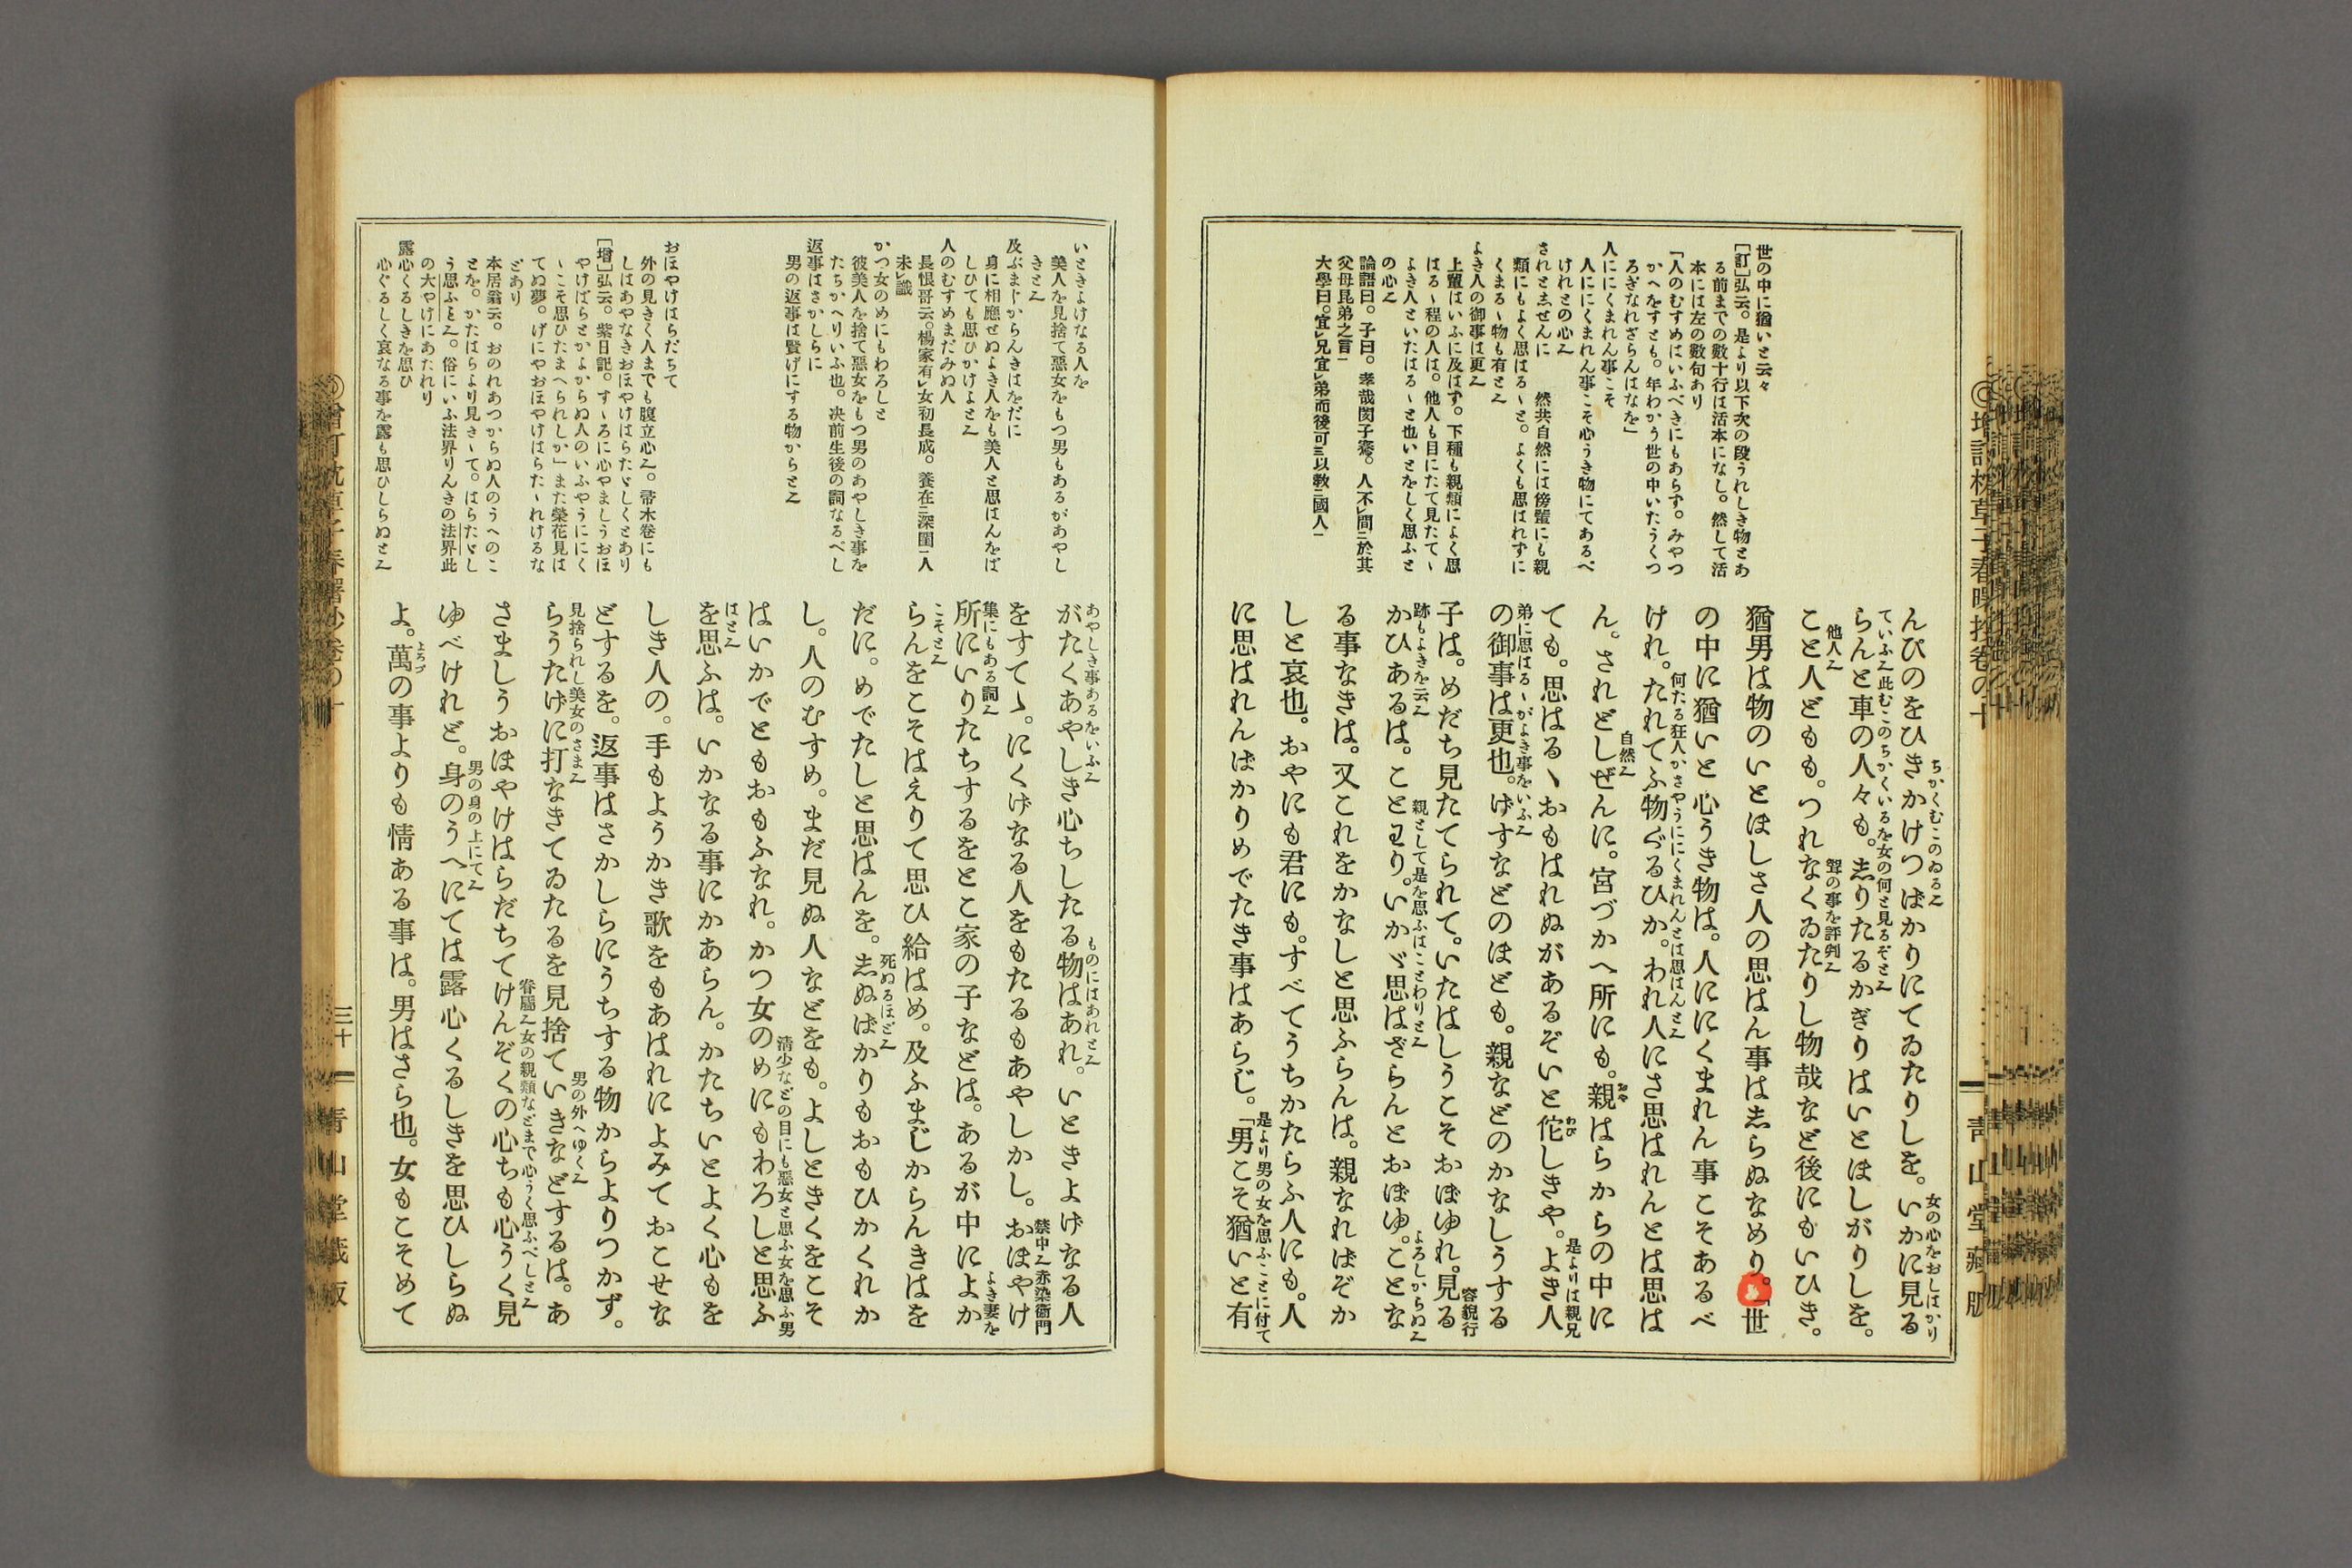 世の中に猶いと云々
［訂］弘云。是より以下次の段うれしき物とあ
る前までの數十行は活本になし。然して活
本には左の數句あり
「人のむすめはいふべきにもあらず。みやつ
かへをすとも。年わかう世の中いたうくつ
ろぎなれざらんはなを」
人ににくまれん事こそ
人ににくまれん事こそ心うき物にてあるべ
けれとの心𛀆
されど𛁈ぜんに　然共自然には傍輩にも親
類にもよく思はるゝと。よくも思ばれずに
くまるゝ物も有と𛀆
よき人の御事は更𛀆
上輩はいふに及ばず。下種も親類によく思
はるゝ程の人は。他人も目にたて見たてゝ
よき人といたはるゝと也いとをしく思ふと
の心𛀆
論語曰。子曰。孝哉閔子騫。人不㆑間㆓於其
父母昆弟之言㆒
大學曰。宜㆑兄宜㆑弟而後可㆔以敎㆓國人㆒
ちかくむこのゐる𛀆
女の心をおしはかり
んびのをひきかけつばかりにてゐたりしを。いかに見る
ていふ𛀆此むこのちかくいるを女の何と見るぞと𛀆
らんと車の人々も。𛁈りたるかぎりはいとほしがりしを。
他人𛀆
聟の事を評判𛀆
こと人どもも。つれなくゐたりし物哉など後にもいひき。
猶男は物のいとほしさ人の思はん事は𛁈らぬなめり。「世
の中に猶いと心うき物は。人ににくまれん事こそあるべ
何たる狂人かさやうににくまれんとは思はんと𛀆
けれ。たれてふ物ぐるひか。われ人にさ思はれんとは思は
自然𛀆
ん。されどしぜんに。宮づかへ所にも。親はらからの中に
おや
ても。思はるゝおもはれぬがあるぞいと侘しきや。よき人
わび
是よりは親兄
弟に思はるゝがよき事をいふ𛀆
の御事は更也。げすなどのほども。親などのかなしうする
子は。めだち見たてられて。いたはしうこそおぼゆれ。見る
容貌行
跡もよきを云𛀆
親として是を思ふはことわりと𛀆
よろしからぬ𛀆
かひあるは。ことわり。いかゞ思はざらんとおぼゆ。ことな
る事なきは。又これをかなしと思ふらんは。親なればぞか
しと哀也。おやにも君にも。すべてうちかたらふ人にも。人
に思はれんばかりめでたき事はあらじ。「男こそ猶いと有
是より男の女を思ふことに付て
靑山堂藏版
いときよげなる人を
美人を見捨て惡女をもつ男もあるがあやし
きと𛀆
及ぶまじからんきはをだに
身に相應せぬよき人をも美人と思はんをば
しひても思ひかけよと𛀆
人のむすめまだみぬ人
長恨哥云。楊家有㆑女初長成。養在㆓深閨㆒人
未㆑識
かつ女のめにもわろしと
彼美人を捨て惡女をもつ男のあやしき事を
たちかへりいふ也。决前生後の詞なるべし
返事はさかしらに
男の返事は賢げにする物からと𛀆
おほやけはらだちて
外の見きく人までも腹立心𛀆。帚木卷にも
しはあやなきおほやけはらだゝしくとあり
［增］弘云。紫日記。すゝろに心やましうおほ
やけばらとかよからぬ人のいふやうににく
ゝこそ思ひたまへられしか」また榮花見は
てぬ夢。げにやおほやけはらだゝれけるな
どあり
本居翁云。おのれあつからぬ人のうへのこ
とを。かたはらより見きゝて。はらだゝし
う思ふを𛀆。俗にいふ法界りんきの法界此
の大やけにあたれり
露心くるしきを思ひ
心ぐるしく哀なる事を露も思ひしらぬと𛀆
あやしき事あるをいふ𛀆
ものにはあれと𛀆
がたくあやしき心ちしたる物はあれ。いときよげなる人
をすてゝ。にくげなる人をもたるもあやしかし。おほやけ
禁中𛀆赤染衞門
集にもある詞𛀆
よき妻を
所にいりたちするをとこ家の子などは。あるが中によか
こそと𛀆
らんをこそはえりて思ひ給はめ。及ふまじからんきはを
だに。めでたしと思はんを。𛁈ぬばかりもおもひかくれか
死ぬるほど𛀆
し。人のむすめ。まだ見ぬ人などをも。よしときくをこそ
はいかでともおもふなれ。かつ女のめにもわろしと思ふ
清少などの目にも惡女と思ふ女を思ふ男
はと𛀆
を思ふは。いかなる事にかあらん。かたちいとよく心もを
しき人の。手もようかき歌をもあはれによみておこせな
どするを。返事はさかしらにうちする物からよりつかず。
見捨られし美女のさま𛀆
男の外へゆく𛀆
らうたげに打なきてゐたるを見捨ていきなどするは。あ
眷屬𛀆女の親類などまで心うく思ふべしと𛀆
さましうおほやけはらだちてけんぞくの心ちも心うく見
男の身の上にて𛀆
ゆべけれど。身のうへにては露心くるしきを思ひしらぬ
よろづ
よ。萬の事よりも情ある事は。男はさら也。女もこそめて
三十
靑山堂藏版